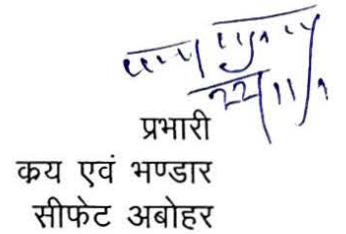 22/11/1
प्रभारी
कय एवं भण्डार
सीफेट अबोहर